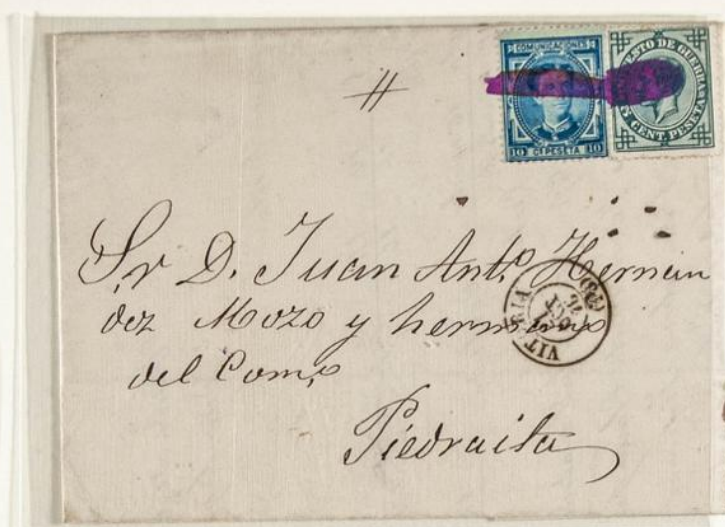 COMUNICACIONES
10 CT PESETA 10
ESTO DE GUERRA
5 CENT. PESETA
Sr D. Juan Ant.º Hernan
dez Mozo y hermano
del Com.º
VITORIA
Piedraita